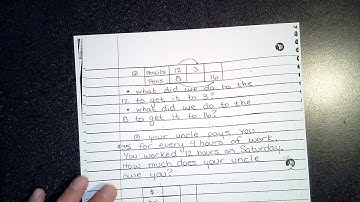 ② Pencils 12 3
Pens 8 16
• what did we do to the
12 to get it to 3?
• what did we do to the
8 to get it to 16?
③ your uncle pays you
$35 for every 4 hours of work.
You worked 12 hours on Saturday.
How much does your uncle
owe you?
$